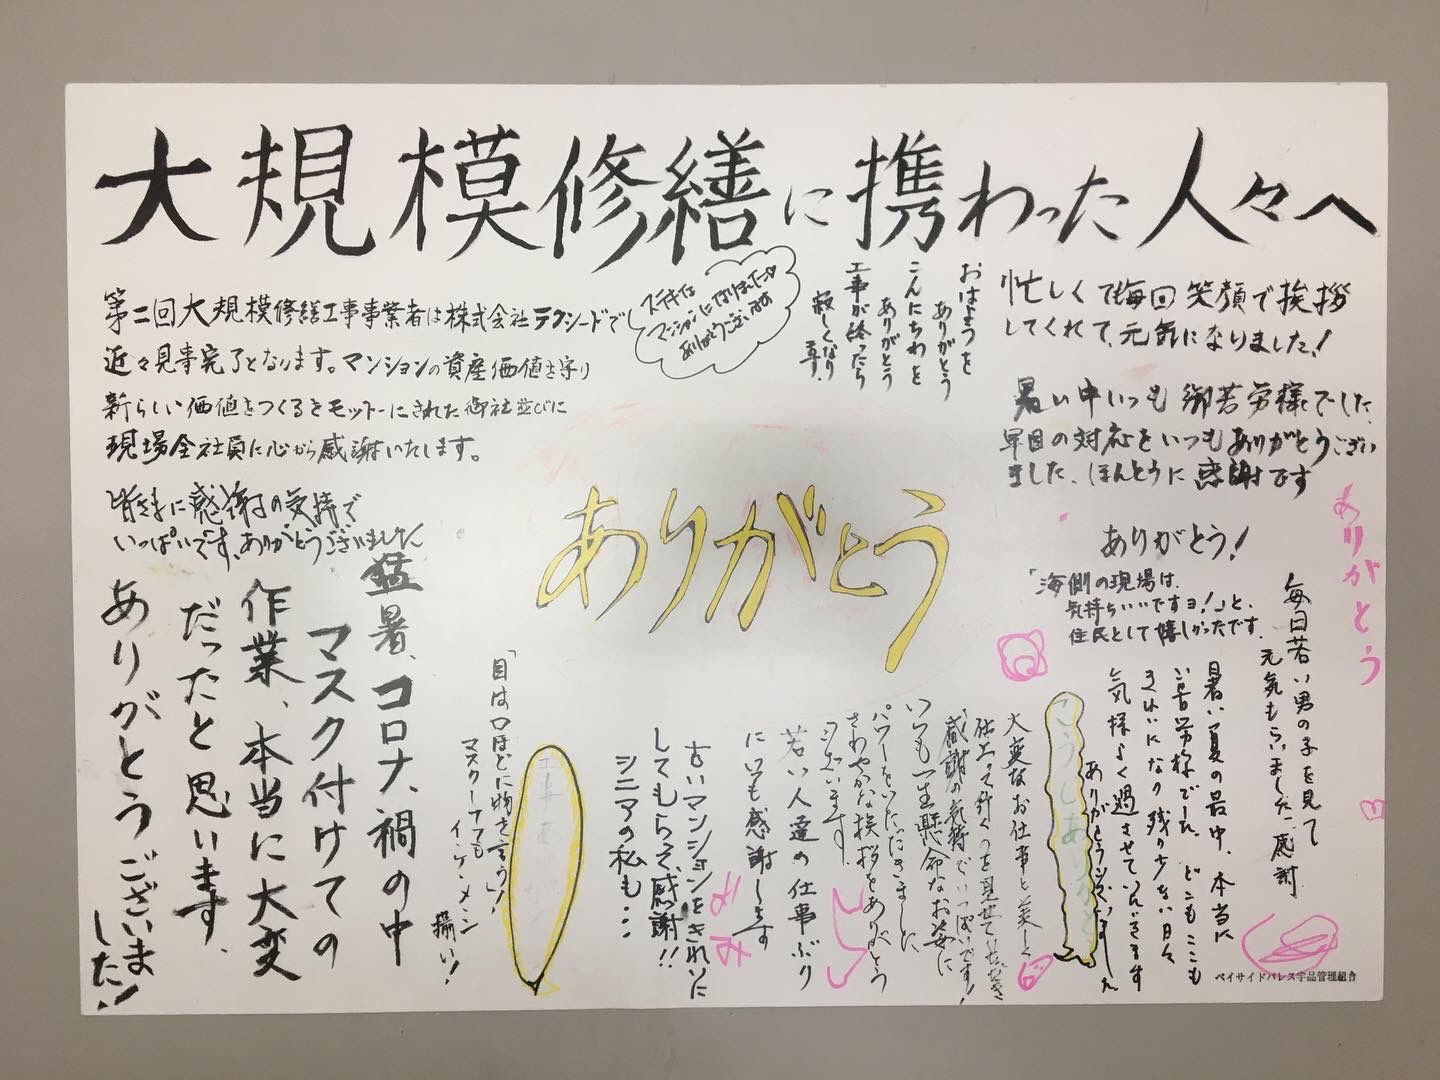 大規模修繕に携わった人々へ
第二回大規模修繕工事事業者は株式会社テクシードで
近々見事完了となります。マンションの資産価値を守り
新らしい価値をつくるをモットーにされた御社並びに
現場全社員に心から感謝いたします。
ステキな
マンションになりました♡
ありがとうございます
おはようを
ありがとう
こんにちわを
ありがとう
工事が終ったら
寂しくなり
ます.
忙しくて毎回笑顔で挨拶
してくれて、元気になりました!
暑い中いつも御苦労様でした
早目の対応をいつもありがとうござい
ました、ほんとうに感謝です
皆さまに感謝の気持で
いっぱいです、ありがとうございました
ありがとう
ありがとう!
「海側の現場は、
気持ちいいですョ!」と、
住民として嬉しかったです.
ありがとう
毎日若い男の子を見て
元気もらいました 感謝
暑い夏の最中、本当に
ご苦労様でした どこもここも
きれいになり 残り少ない日々
気持よく過させていただきます
ありがとうございました
こうじありがと
大変なお仕事と美しく
仕上って行くを見せていただき
感謝の気持でいっぱいです!
いつも一生懸命なお姿に
パワーをいただきました、
さわやかな挨拶をありがとう
ございます。
若い人達の仕事ぶり
にいつも感謝します
古いマンションをきれいに
してもらって、感謝!!
シニアの私も・・・
よみ
工事あ
「目は口ほどに物を言う!」
マスクしてても
イケメン
揃い!
猛暑、コロナ禍の中
マスク付けての
作業、本当に大変
だったと思います.
ありがとうございま
した!
ベイサイドパレス宇品管理組合